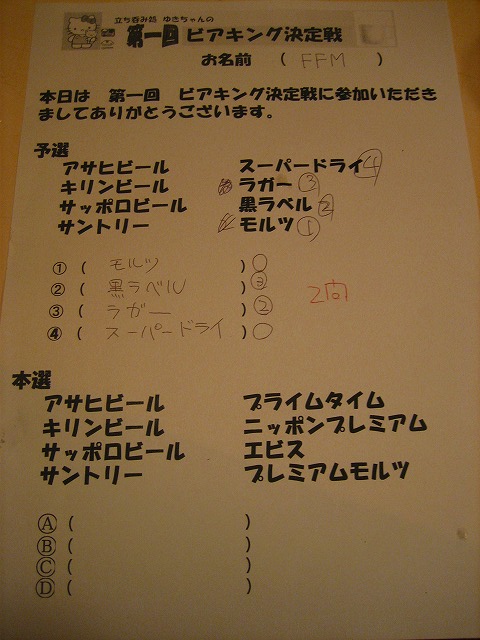 立ち呑み処 ゆきちゃんの
第一回 ビアキング決定戦
お名前 ( FFM )
本日は 第一回 ビアキング決定戦に参加いただき
ましてありがとうございます。
予選
アサヒビール スーパードライ ④
キリンビール ラガー ③
サッポロビール 黒ラベル ②
サントリー モルツ ①
① ( モルツ ) ○
② ( 黒ラベル ) ③
③ ( ラガー ) ②
④ ( スーパードライ ) ○
2問
本選
アサヒビール プライムタイム
キリンビール ニッポンプレミアム
サッポロビール エビス
サントリー プレミアムモルツ
Ⓐ ( )
Ⓑ ( )
Ⓒ ( )
Ⓓ ( )